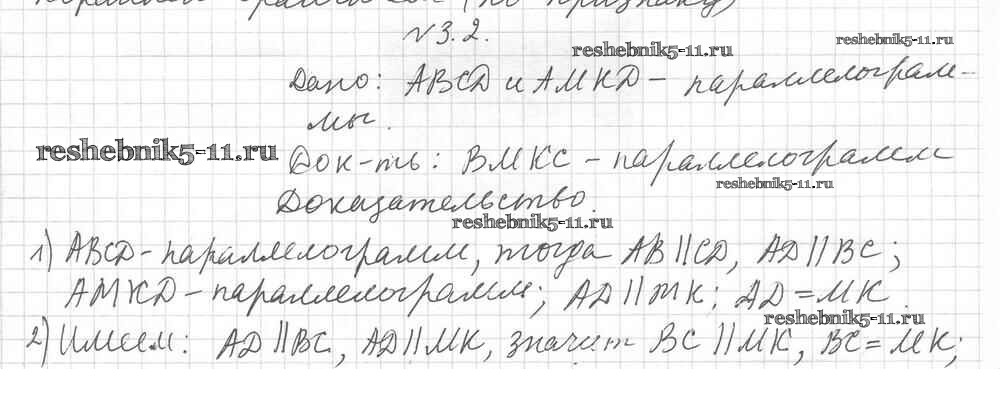 параллелограммом (по признаку)
№3.2.
reshebnik5-11.ru
reshebnik5-11.ru
Дано: ABCD и AMKD - параллелограм-
мы.
reshebnik5-11.ru
Док-ть: BMKC - параллелограмм
reshebnik5-11.ru
Доказательство.
reshebnik5-11.ru
1) ABCD - параллелограмм, тогда AB||CD, AD||BC;
AMKD - параллелограмм; AD||MK; AD=MK.
reshebnik5-11.ru
2) Имеем: AD||BC, AD||MK, значит BC||MK, BC=MK;